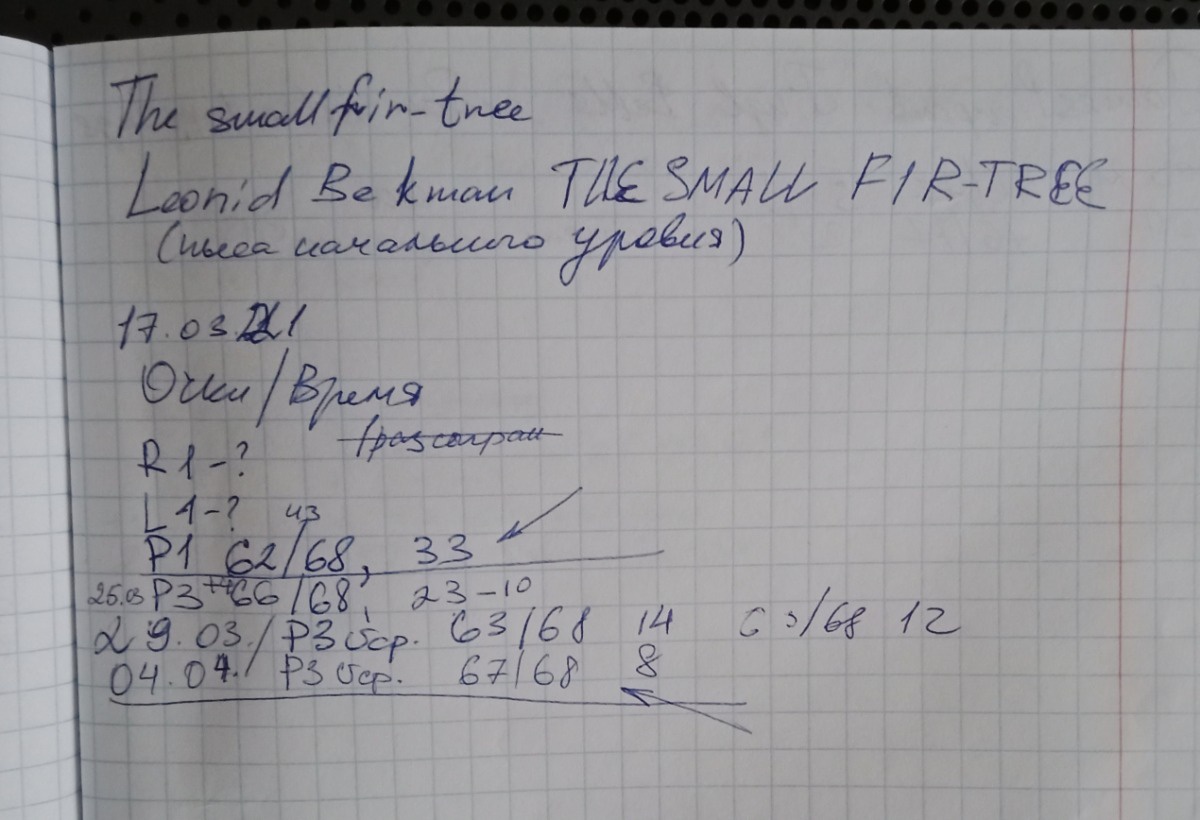 The small fir-tree
Leonid Bekman THE SMALL FIR-TREE
(пьеса начального уровня)
17.03.21
Очки/Время
R1-?
L1-? из
P1 62/68, 33
25.03 P3 66/68, 23-10
29.03./ P3 63/68 14 63/68 12
04.04./ P3 67/68 8